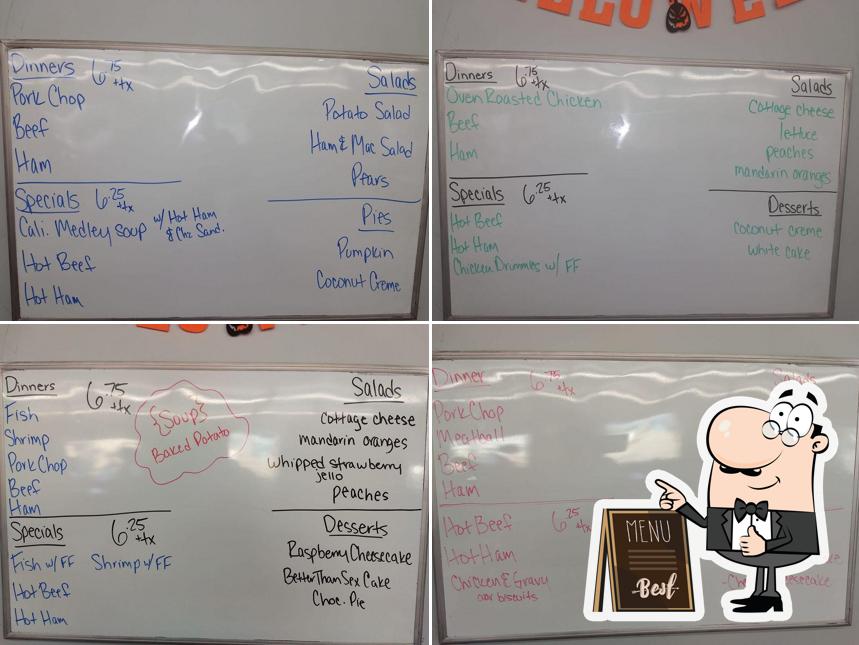 Dinners 6.75 +tx
Pork Chop
Beef
Ham
Specials 6.25 +tx
Cali. Medley Soup w/ Hot Ham & Chz Sand.
Hot Beef
Hot Ham
Salads
Potato Salad
Ham & Mac Salad
Pears
Pies
Pumpkin
Coconut Creme
Dinners 6.75 +tx
Oven Roasted Chicken
Beef
Ham
Specials 6.25 +tx
Hot Beef
Hot Ham
Chicken Drummies w/ FF
Salads
Cottage cheese
lettuce
peaches
mandarin oranges
Desserts
coconut creme
white cake
Dinners 6.75 +tx
Fish
Shrimp
Pork Chop
Beef
Ham
Specials 6.25 +tx
Fish w/ FF Shrimp w/ FF
Hot Beef
Hot Ham
{Soup}
Baked Potato
Salads
cottage cheese
mandarin oranges
whipped strawberry
jello
peaches
Desserts
Raspberry Cheesecake
Better Than Sex Cake
Choc. Pie
Dinner 6.75 +tx
Pork Chop
Meatball
Beef
Ham
Hot Beef 6.25 +tx
Hot Ham
Chicken & Gravy
over biscuits
Salads
MENU
Best